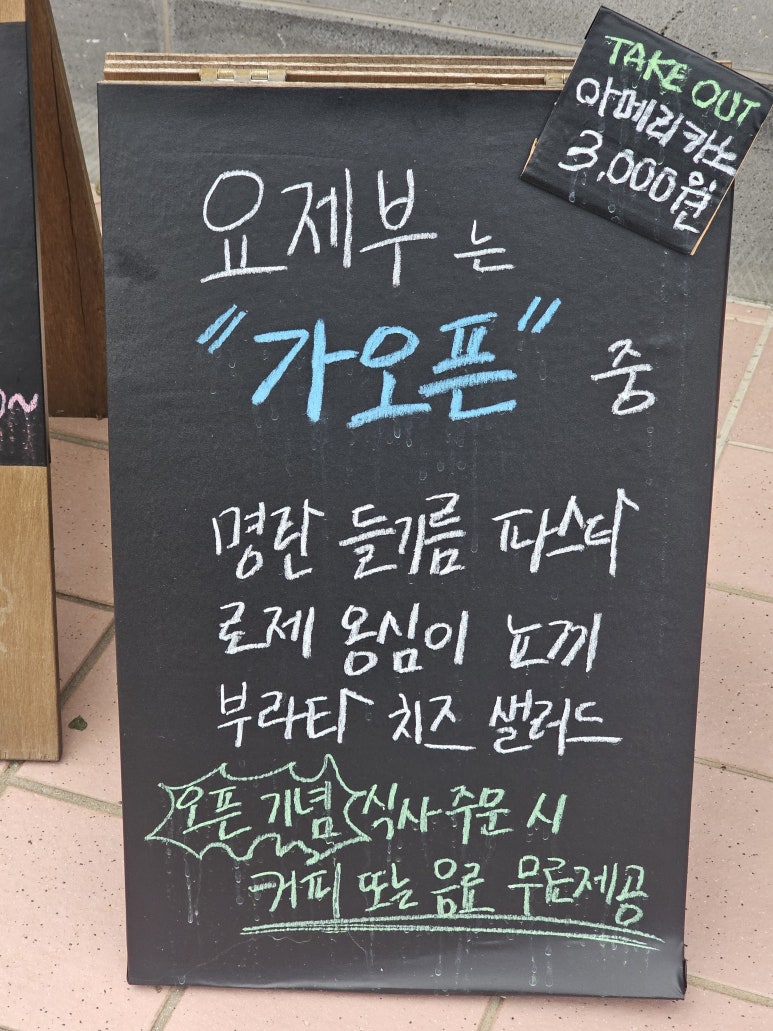 TAKE OUT
아메리카노
3,000원
요제부는
"가오픈" 중
명란 들기름 파스타
로제 옹심이 뇨끼
부라타 치즈 샐러드
오픈 기념 식사 주문 시
커피 또는 음료 무료제공